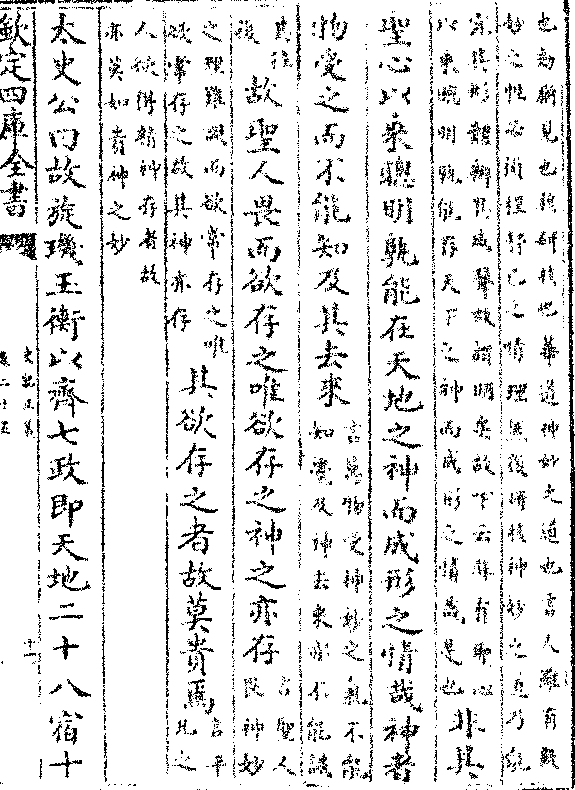 也効猶見也覈研核也華道神妙之道也言人雖有微
妙之性必須程督己之情理然後研核神妙之道乃能
究其形體辨其成聲故謂明矣故下云非有聖心
以乘聰明孰能存天下之神而成形之情哉是也
非其
聖心以乘聰明孰能在天地之神而成形之情哉神者
物受之而不能知及其去來
言萬物受神妙之氣不能
知覺及神去來亦不能識
其往
復
故聖人畏而欲存之唯欲存之神之亦存
言聖人
畏神妙
之理難測而欲常存之唯
欲常存之故其神亦存
其欲存之者故莫貴焉
言平
凡之
人欲得精神存者故
亦莫如貴神之妙
太史公曰故旋璣玉衡以齊七政即天地二十八宿十
欽定四庫全書
史記正義
卷二十五
十一